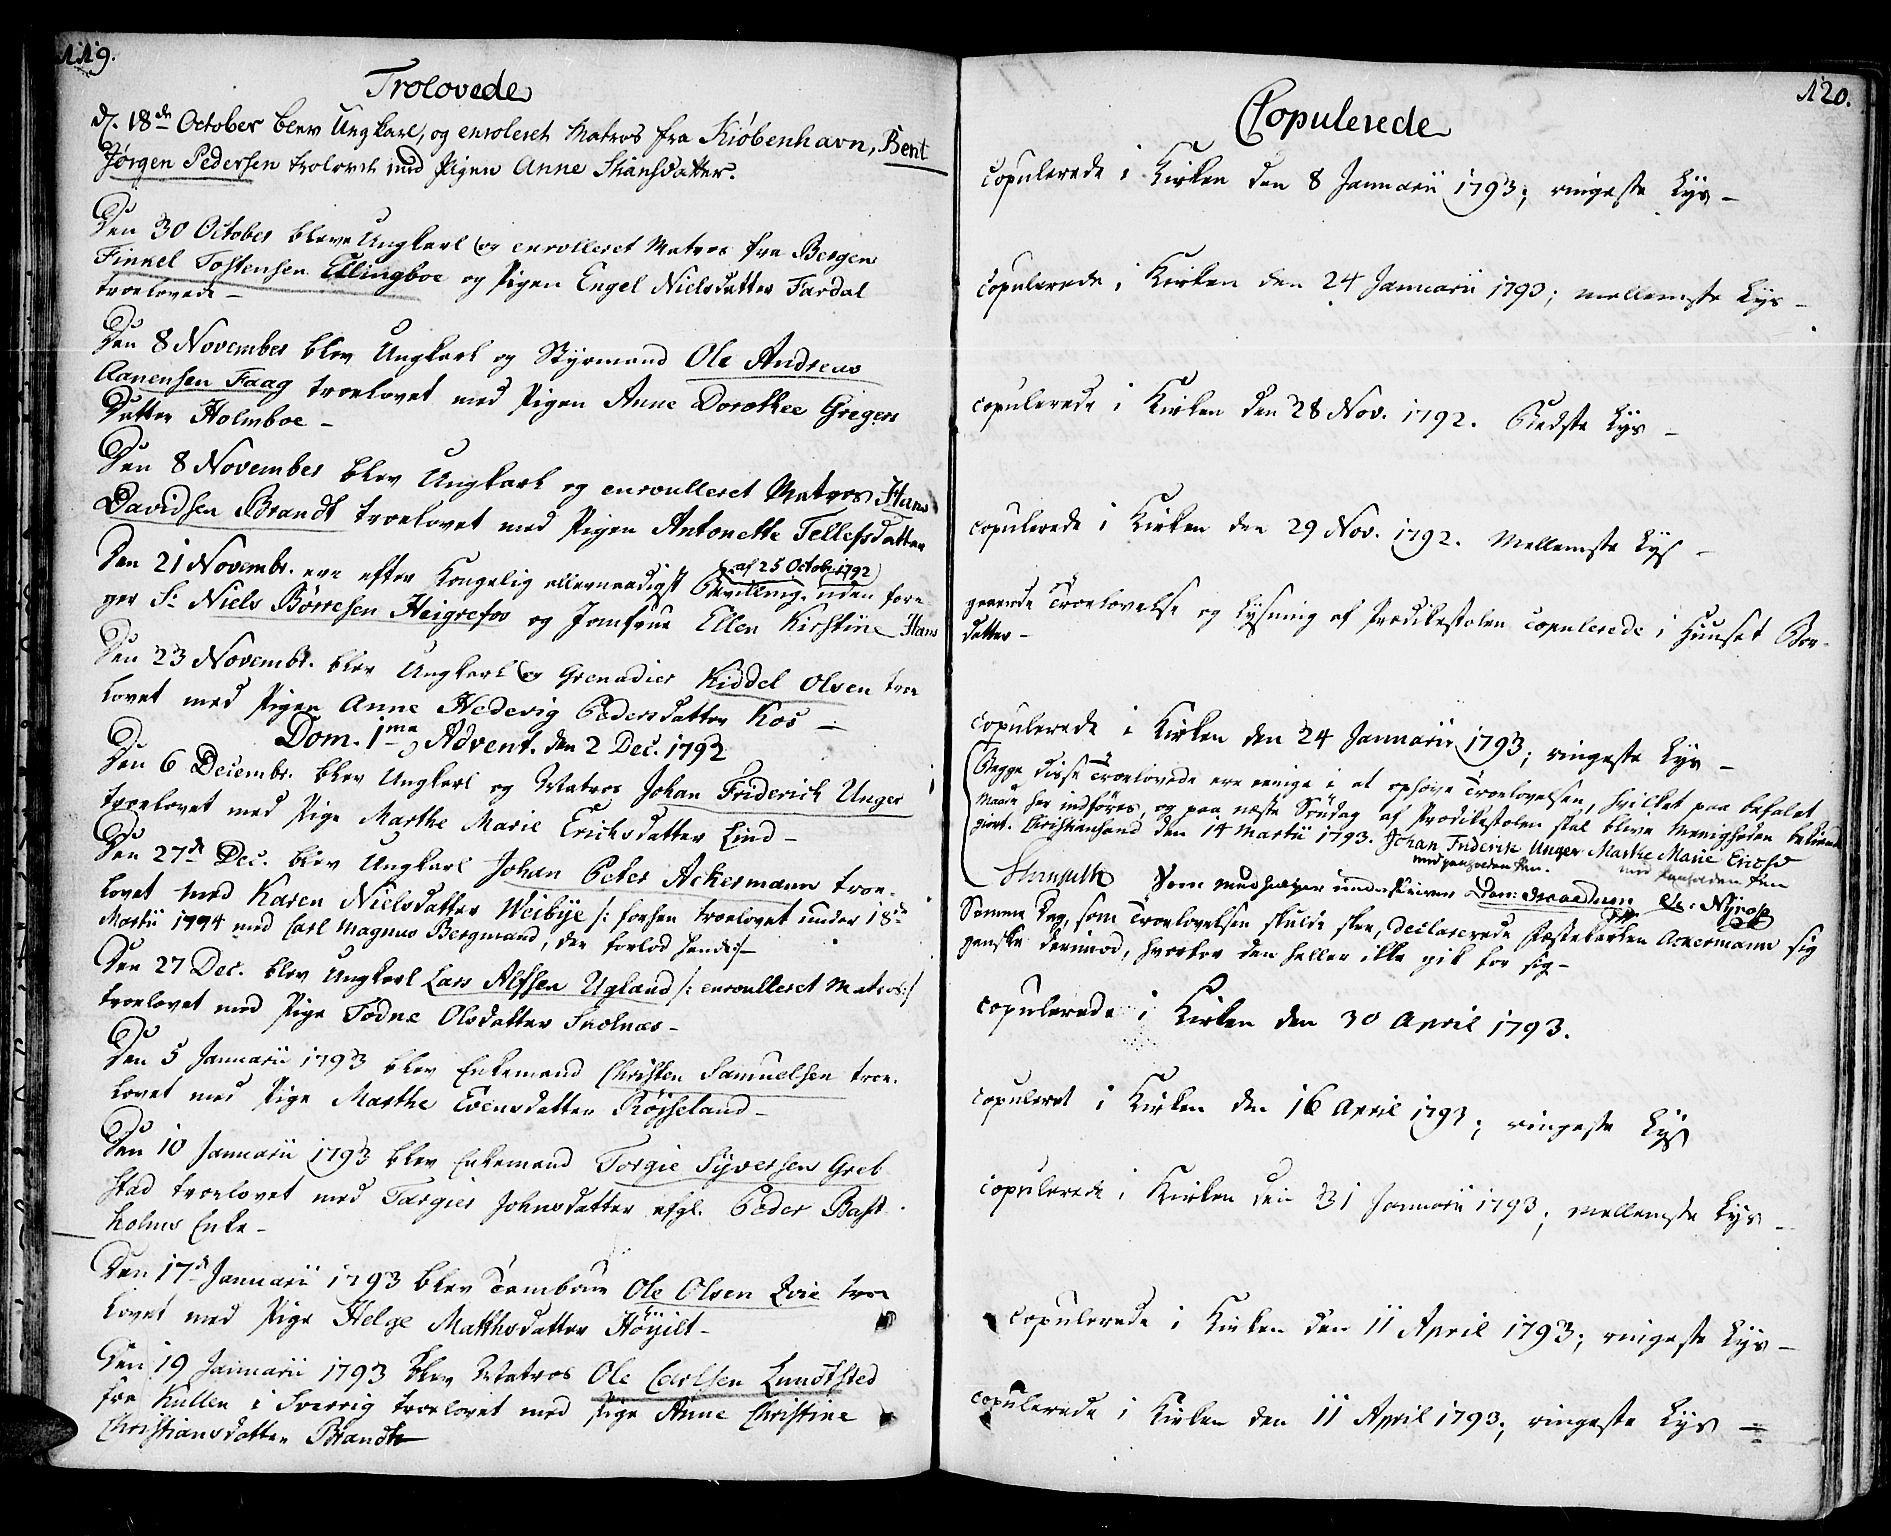 119.
Trolovede
d. 18de October blev Ungkarl, og enroleret Matros fra Kiøbenhavn, Bent
Jørgen Pedersen trolovet med Pigen Anne Stiansdatter.
Den 30 October bleve Ungkarl og enrolleret Matros fra Bergen
Finkel Tostensen Ellingboe og Pigen Engel Nielsdatter Fardal
troelovede –
Den 8 November blev Ungkarl og Styrmand Ole Andreas
Aanensen Faag troelovet med Pigen Anne Dorothee Gregers
Datter Holmboe –
Den 8 November blev Ungkarl og enroulleret Matros Hans
Davidsen Brandt troelovet med Pigen Antonette Tellefsdatter
Den 21 Novembr. ere efter Kongelig allernaadigst Bevilling, af 25 Octobr. 1792 uden fore-
ger Sr. Niels Börresen Heigrefos og Jomfrue Ellen Kirstine Hans
Den 23 Novembr. blev Ungkarl og Grenadier Kiddel Olsen troe
lovet med Pigen Anne Hedevig Pedersdatter Kos –
Dom. 1ma Advent. den 2 Dec. 1792
Den 6 Decembr. blev Ungkarl og Matros Johan Friderich Unger
troelovet med Pige Marthe Marie Erichsdatter Lind –
Den 27de Dec. blev Ungkarl Johan Peter Ackermann troe-
lovet med Karen Nielsdatter Weibÿe /: forhen troelovet under 18de
Martii 1774 med Carl Magnus Bergmand, der forlod hende :/ –
Den 27 Dec. blev Ungkarl Lars Alfsen Ugland /: enroulleret Matros :/
troelovet med Pige Todne Olsdatter Snolnæs –
Den 5 Januarii 1793 blev Enkemand Christen Samuelsen troe-
lovet med Pige Marthe Evensdatter Røsseland –
Den 10 Januarii 1793 blev Enkemand Torgie Syversen Greb-
stad troelovet med Targier Johnsdatter afgl. Peder Bast-
holms Enke –
Den 17de Januarii 1793 blev Tambour Ole Olsen Lvie troe
lovet med Pige Helge Matthisdatter Höÿilt –
Den 19 Januarii 1793 blev Matros Ole Carlsen Lundtsted
fra Kullen i Sverrig troelovet med Pige Anne Christine
Christiansdatter Brandt
120.
Copulerede
copulerede i Kirken den 8 Januarii 1793; ringeste Lys –
copulerede i Kirken den 24 Januarii 1793; mellemste Lys –
copulerede i Kirken den 28 Nov. 1792. Bedste Lys –
copulerede i Kirken den 29 Nov. 1792. Mellemste Lys –
gaaende Troelovelse og Lysning af Prædikestolen copulerede i Huuset Bor-
datter –
copulerede i Kirken den 24 Januarii 1793; ringeste Lys –
Begge disse Troelovede ere eenige i at ophæve Troelovelsen, hvilket paa befalet
Maade her indföres, og paa næste Söndag af Prædikestolen skal blive Menigheden bekiendt
giort. Christiansand den 14 Martii 1793. Johan Friderik Unger Marthe Marie Erichsd
med paaholden Pen. med paaholden Pen
Som underskriver Nÿrop
Samme Dag, som Troelovelsen skulde skee, declarerede Fæstekarlen Ackermann sig
ganske derimod, hvorfor den heller ikke gik for sig –
copulerede i Kirken den 30 April 1793.
copuleret i Kirken den 16 April 1793; ringeste Lys
copulerede i Kirken den 31 Januarii 1793; mellemste Lys –
copulerede i Kirken den 11 April 1793; ringeste Lys –
copulerede i Kirken den 11 April 1793; ringeste Lys –